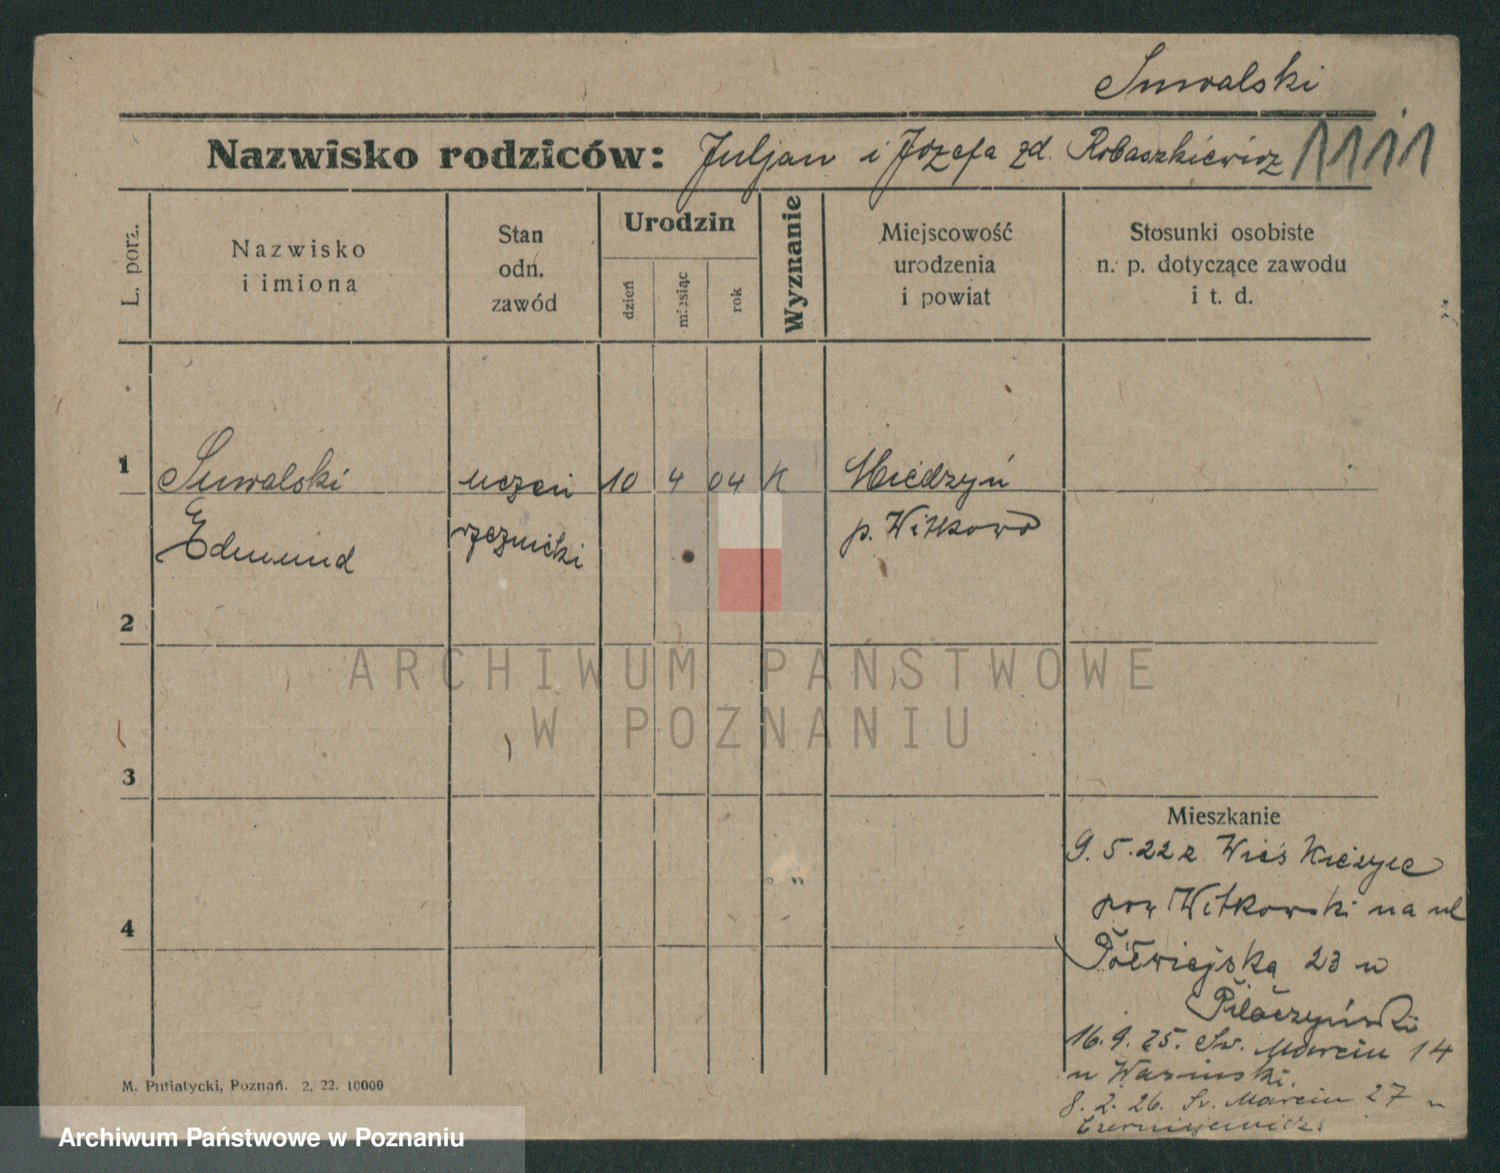 Suwalski
Nazwisko rodziców: Juljan i Józefa zd. Robaszkiewicz 1111
L. porz.
Nazwisko
i imiona
Stan
odn.
zawód
Urodzin
dzień
miesiąc
rok
Wyznanie
Miejscowość
urodzenia
i powiat
Stosunki osobiste
n. p. dotyczące zawodu
i t. d.
1 Suwalski uczeń 10 4 04 K Miedzyń
Edmund rzeźnicki p. Witkowo
2
ARCHIWUM PAŃSTWOWE
W POZNANIU
3
Mieszkanie
9. 5. 22 z Wieś
pow Witkowski na ul
4
Półwiejska 23 u
Pilaczyński
16. 9. 25. Św. Marcin 14
u
8. 2. 26. Św. Marcin 27 u
Czerniejewicz.
M. Putiatycki, Poznań. 2, 22. 10000
Archiwum Państwowe w Poznaniu